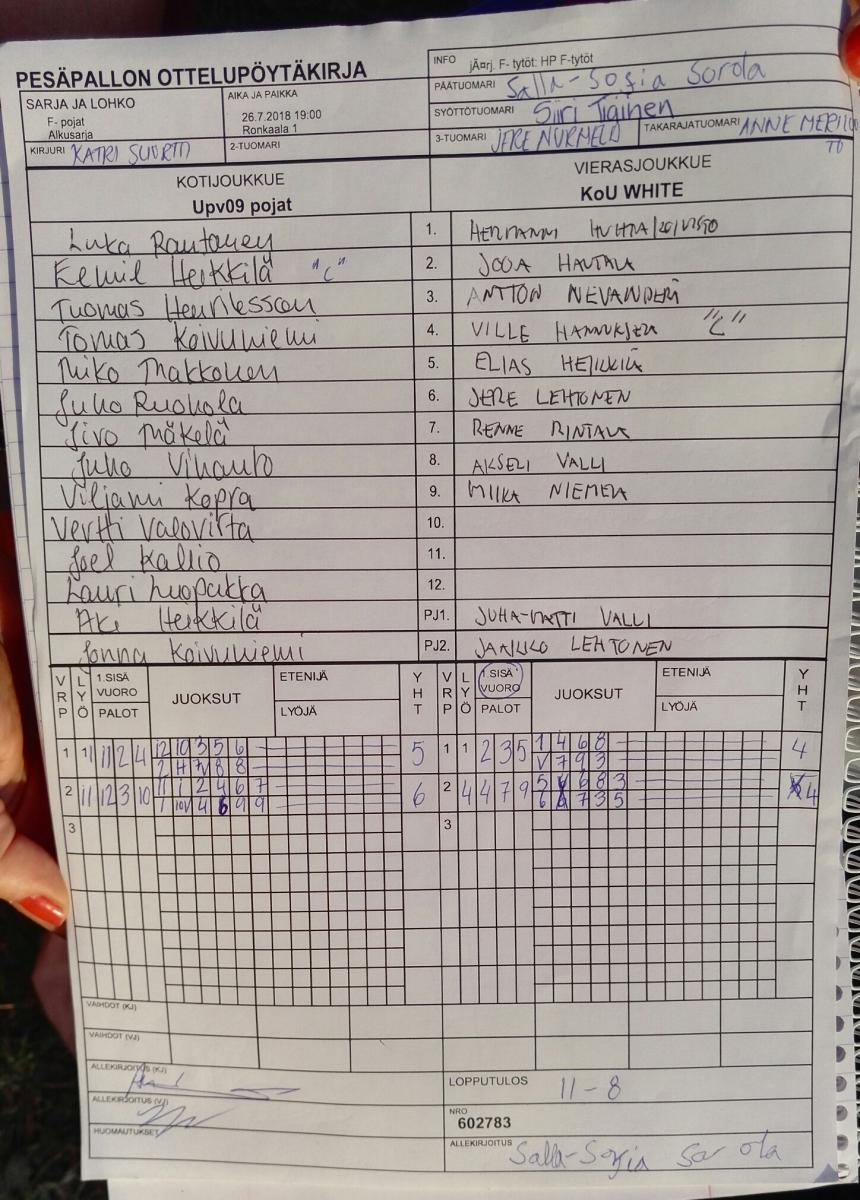 PESÄPALLON OTTELUPÖYTÄKIRJA
INFO jÄ¤rj. F- tytöt: HP F-tytöt
PÄÄTUOMARI Salla-Sofia Sorola
SYÖTTÖTUOMARI Siiri
3-TUOMARI JERE TAKARAJATUOMARI ANNE
SARJA JA LOHKO
F- pojat
Alkusarja
AIKA JA PAIKKA
26.7.2018 19:00
Ronkaala 1
KIRJURI KATRI
2-TUOMARI
KOTIJOUKKUE
Upv09 pojat
VIERASJOUKKUE
KoU WHITE
Luka Rautanen 1.
Eemil Heikkilä "C" 2. JOOA HAUTALA
Tuomas Henriksson 3. ANTTON
Tomas Koivuniemi 4. VILLE "C"
Miko Makkonen 5. ELIAS HEIKKILÄ
Juho Ruohola 6. JERE LEHTONEN
Iivo Mäkelä 7. RENNE RINTALA
Juho 8. AKSELI VALLI
Viljami Kopra 9. MIIKA NIEMELÄ
Vertti Valovirta 10.
Joel Kallio 11.
Lauri Luopakka 12.
Aki Heikkilä PJ1. JUHA-MATTI VALLI
Jonna Koivuniemi PJ2. JAAKKO LEHTONEN
VRP LYÖ 1.SISÄ VUORO PALOT JUOKSUT ETENIJÄ LYÖJÄ YHT VRP LYÖ 1.SISÄ VUORO PALOT JUOKSUT ETENIJÄ LYÖJÄ YHT
1 1 11 2 4 12 10 3 5 6 5 1 1 2 3 5 1 4 6 8 4
2 H 7V 8 8 V 7 9 3
2 11 12 3 10 11 1 2 4 6 7 6 2 4 4 7 9 5 6 8 3 4
1 10V 4 6 9 9 6 7 3 5
3 3
VAIHDOT (KJ)
VAIHDOT (VJ)
ALLEKIRJOITUS (KJ)
ALLEKIRJOITUS (VJ)
HUOMAUTUKSET
LOPPUTULOS 11-8
NRO
602783
ALLEKIRJOITUS Salla-Sofia Sorola